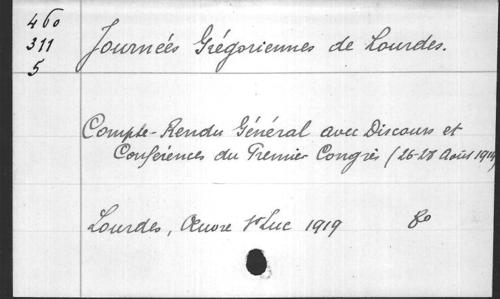 460
311
5
Journées Grégoriennes de Lourdes.
Compte-Rendu Général avec Discours et
Conférences du Premier Congrès (26-28 Août 1919)
Lourdes, Œuvre St Luc 1919 80